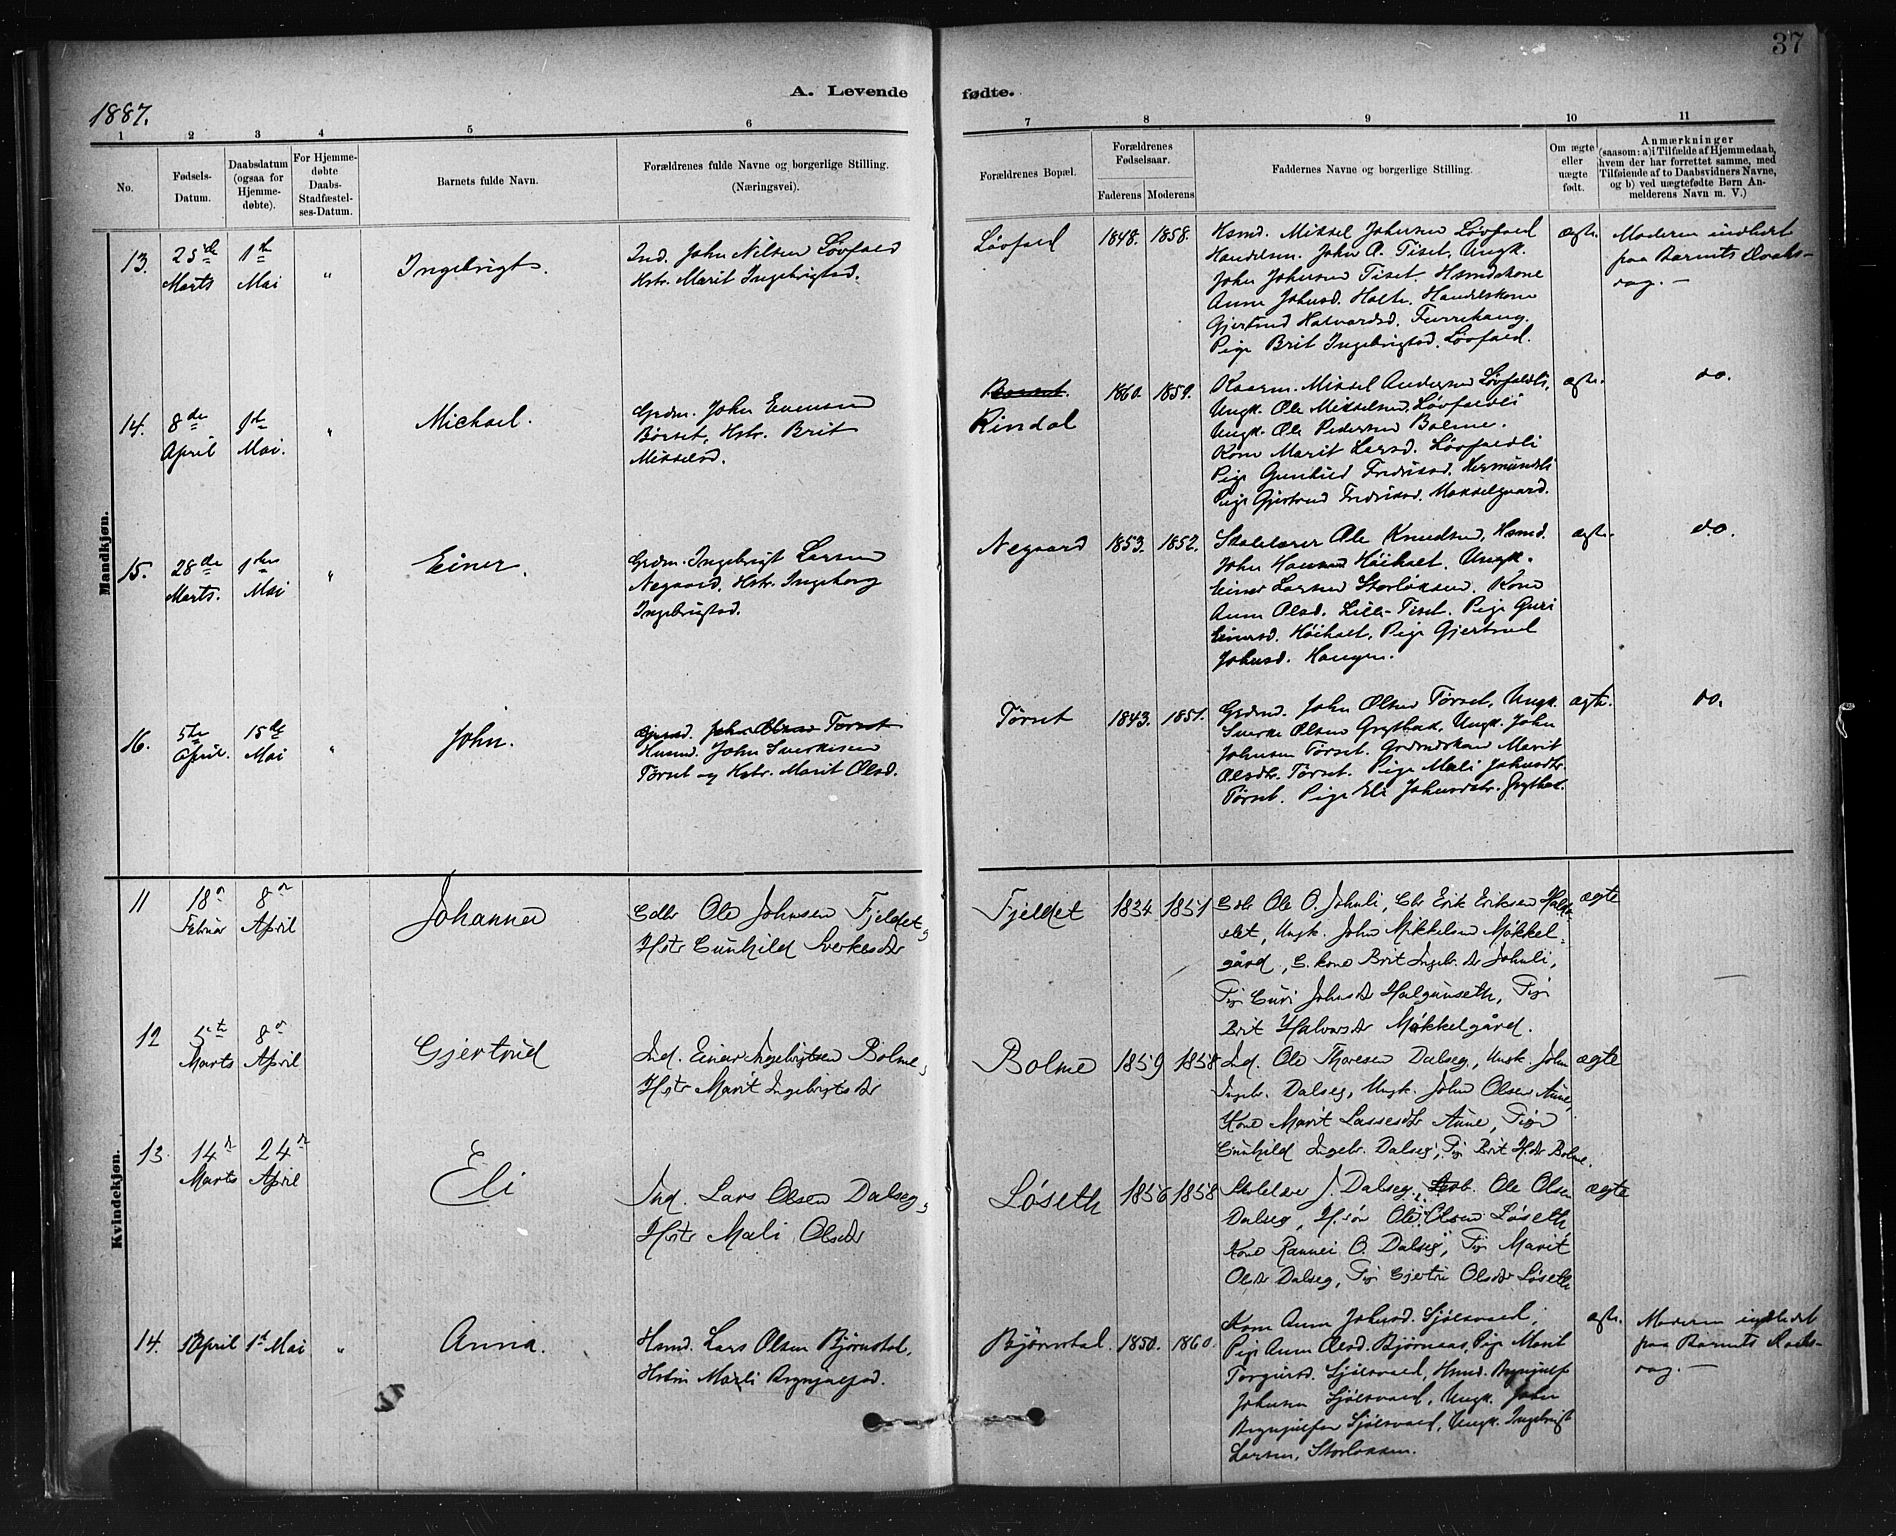 37
1887.
A. Levende fødte.
1 2 3 4 5 6 7 8 9 10 11
No.
Fødsels-
Datum.
Daabsdatum
(ogsaa for
Hjemme-
døbte).
For Hjemme-
døbte
Daabs-
Stadfæstel-
ses-Datum.
Barnets fulde Navn.
Forældrenes fulde Navne og borgerlige Stilling.
(Næringsvei).
Forældrenes Bopæl.
Forældrenes
Fødselsaar.
Faderens Moderens
Faddernes Navne og borgerlige Stilling.
Om ægte
eller
uægte
født.
Anmærkninger
(saasom: a) i Tilfælde af Hjemmedaab,
hvem der har forrettet samme, med
Tilføiende af to Daabsvidners Navne,
og b) ved uægtefødte Børn An-
melderens Navn m. V.)
Mandkjøn.
13.
25de
Marts
1ste
Mai
"
Ingebrigt.
Ind. John Nilsen Løvfald
Hstr. Marit Ingebrigtsd.
Løvfald
1848. 1858.
Hsmd. Mikkel Johnsen Løvfald
Handelsm. John A. Tiset, Ungk.
John Johnsen Tiset. Hsmdskone
Anne Johnsd. Holte. Handelskone
Gjertrud Halvardsd. Furrehaug.
Pige Brit Ingebrigtsd. Løvfald.
ægte.
Moderen indledet
paa Barnets Daabs-
dag. —
14.
8de
April
1ste
Mai.
"
Michael.
Grdm. John Evensen
Børset, Hstr. Brit
Mikkelsd.
Børset.
Rindal
1860. 1859.
Kaarm. Mikkel Andersen Løvfaldli,
Ungk. Ole Mikkelsen Løvfaldli
Ungk. Ole Pedersen Bolme.
Kone Marit Larsd. Løvfaldli
Pige Gunhild Fredriksd. Hermundsli
Pige Gjertrud Fredriksd. Møkkelgaard.
ægte.
do.
15.
28de
Marts.
1ste
Mai
"
Einer.
Grdm. Ingebrigt Larsen
Negaard, Hstr. Ingeborg
Ingebrigtsd.
Negaard
1853. 1852.
Skolelærer Ole Knudsen, Hsmd.
John Hansen Høiholt. Ungk.
Einer Larsen Storløkken. Kone
Anne Olsd. Lille-Tiset. Pige Guri
Einersd. Høiholt, Pige Gjertrud
Johnsd. Haugen.
ægte.
do.
16.
5te
April.
15de
Mai
"
John.
Grmd. John Olsen Tørset
Husmd. John Sverkesen
Tørset og Hstr. Marit Olsd.
Tørset
1843. 1851.
Grdmd. John Olsen Tørset, Ungk.
Sverke Olsen Grythat, Ungk. John
Johnsen Tørset. Grdmdskone Marit
Olsdtr. Tørset. Pige Mali Johnsdtr.
Tørset. Pige Eli Johnsdtr. Grythat.
ægte.
do.
Kvindekjøn.
11
18n
Februar
8n
April
Johanna
Gdbr Ole Johnsen Fjeldet,
Hstr Gunhild Sverkesdtr
Fjeldet
1834 1851
Gdbr Ole O. Johnli,
Ungk. John Mikkelsen Møkkel-
gård, G. kone Brit Ingebr. dtr Johnli,
Pige Guri Johnsdtr Halgunseth, Pige
Brit Halvorsdtr Møkkelgård.
ægte
—
12
5te
Marts
8n
April
Gjertrud
Ind. Einar Ingebrigtsen Bolme,
Hstr Marit Ingebrigtsdtr
Bolme
1859 1858
Ind. Ole Thoresen Dalseg, Ungk. John
Ingebr. Dalseg, Ungk. John Olsen Aune,
Kone Marit Lassesdtr Aune, Pige
Gunhild Ingebr. Dalseg, Pig. Brit H.dtr Bolme.
ægte
13
14n
Marts
24n
April
Eli
Ind. Lars Olsen Dalseg,
Hstr Mali Olsdtr
Løseth
1856 1858
Skolelær J. Dalseg, Ole Olsen
Dalseg, Ole Olsen Løseth,
Kone Rannei O. Dalseg, Pig. Marit
Olsdtr Dalseg, Pig Gjertru Olsdtr Løseth
ægte
14.
5 April
1st Mai
"
Anna.
Hsmd. Lars Olsen Bjørnstal,
Hstru Marli Brynjulfsd.
Bjørnstal.
1850. 1860.
Kone Anne Johnsd. Sjølsvold,
Pige Anne Olsd. Bjørnaas, Pige Marit
Torgersd. Sjølsvold, Hsmd. Brynjulf
Johnsen Sjølsvold, Ungk. John
Brynjulfsen Sjølsvold, Ungk. Ingebrigt
Larsen, Storløkken.
ægte.
Moderen indledet
paa Barnets Daabs-
dag. —